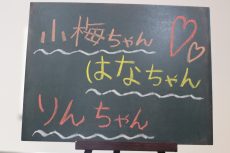 小梅ちゃん
はなちゃん
りんちゃん